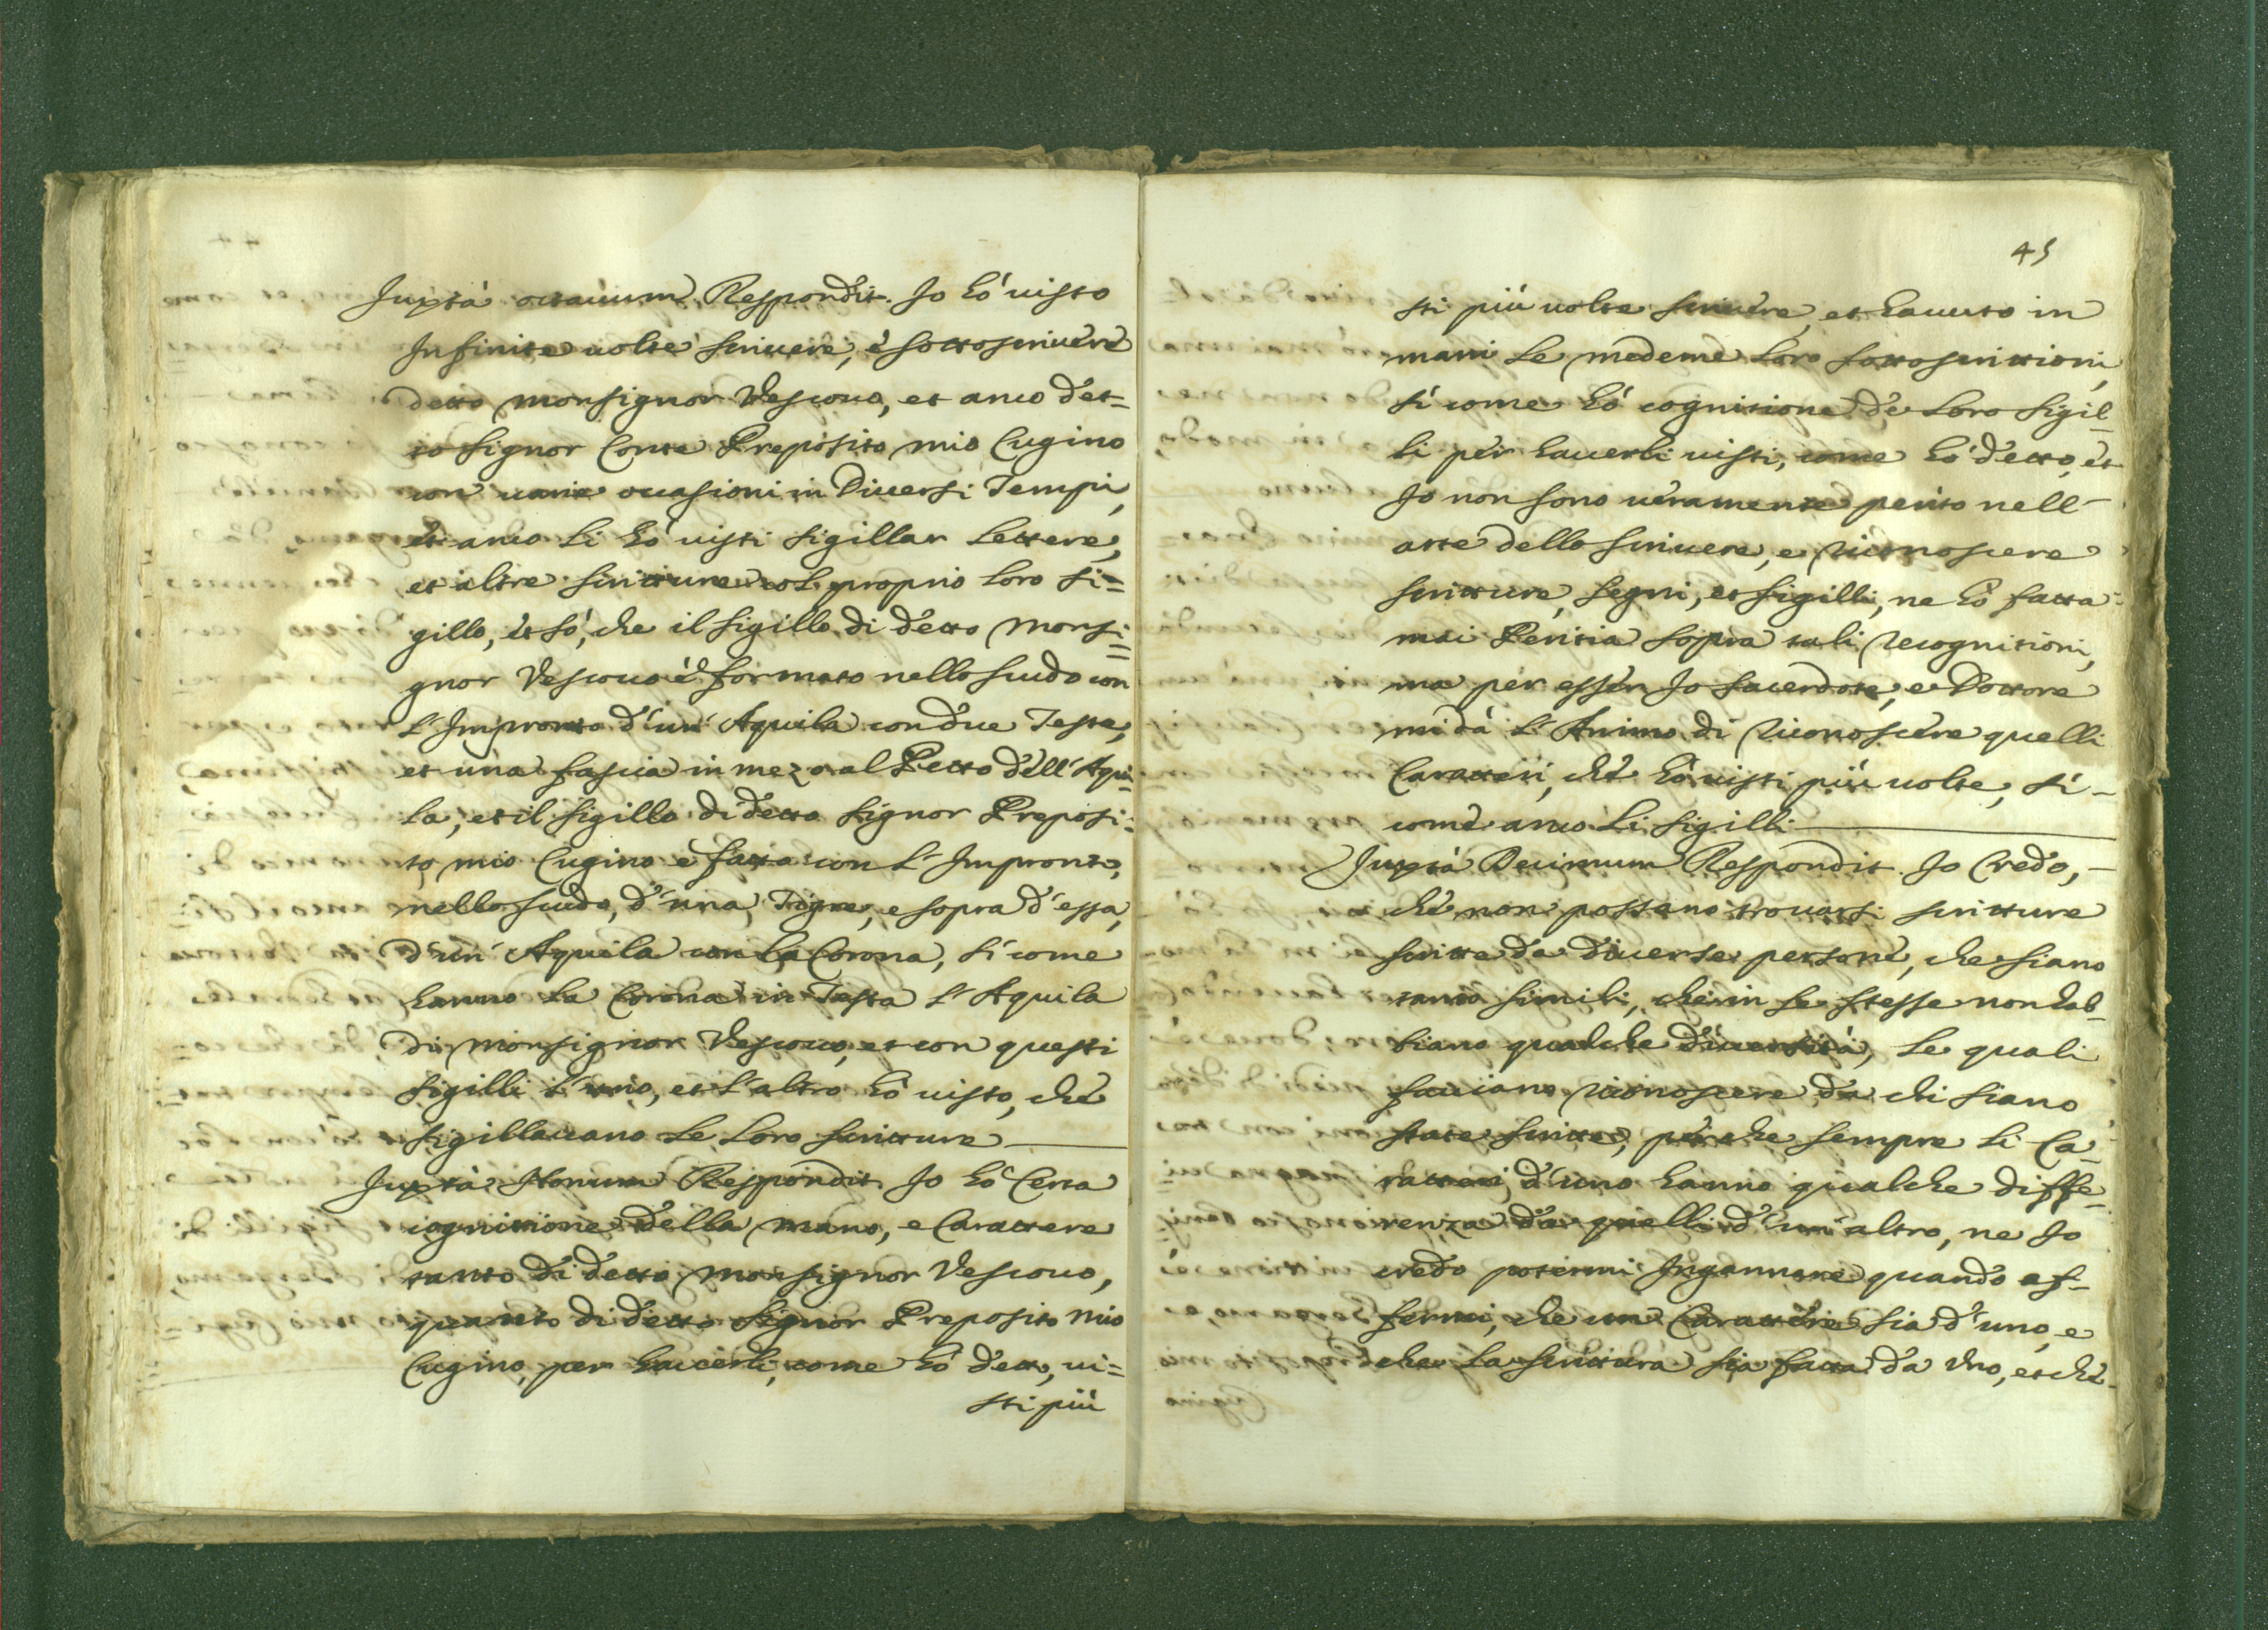 Juxtà octauum Respondit. Jo hò uisto
Infinite uolte scriuere, è sottoscriuere
detto Monsignor Vescouo, et anco det=
to Signor Conte Preposito mio Cugino
con uarie occasioni in Diuersi Tempi,
et anco li hò uisti sigillar lettere,
et altre scritture col proprio loro si=
gillo, et sò, che il sigillo di detto Monsi=
gnor Vescouo è formato nello scudo con
l'Impronto d'un' Aquila con due Teste,
et una fascia in mezo al Petto dell'Aqui=
la, et il sigillo di detto Signor Preposi=
to mio Cugino è fatto con l'Impronto,
nello scudo, d'una Tigre, e sopra d'essa,
d'un' Aquila con la Corona, sì come
hanno la Corona in Testa l'Aquila
di Monsignor Vescouo, et con questi
sigilli l'uno, et l'altro hò uisto, che
sigillauano le loro scritture
Juxtà Nonum Respondit Jo hò Certa
cognittione della mano, e Carattere
tanto di detto Monsignor Vescouo,
quanto di detto Signor Preposito mio
Cugino, per hauerli, come hò detto, ui=
sti più
45
sti più uolte scriuere, et hauuto in
mani le medeme loro sottoscrittioni,
sì come hò cognitione de loro sigil=
li per hauerli uisti, come hò detto, et
Jo non sono ueramente perito nell'
arte dello scriuere, e riconoscere
scritture, segni, et sigilli, ne hò fatta
mai Peritia sopra tali recognitioni,
ma per esser Jo Sacerdote, e Dottore
mi dà l'Animo di riconoscere quelli
Caratteri, che hò uisti più uolte, sì -
come anco li sigilli
Juxtà Decimum Respondit. Jo Credo, -
che non possano trouarsi scritture
scritte da diuerse persone, che siano
tanto simili, che in se stesse non hab=
biano qualche diuersità, le quali
facciano riconoscere da chi siano
state scritte, perche sempre li Ca=
ratteri d'uno hanno qualche diffe=
renza da quelli d'un altro, ne Jo
credo potermi Ingannare quando af=
fermi, che un Carattere sia d'uno, e
che la scrittura sia fatta da Uno, et che